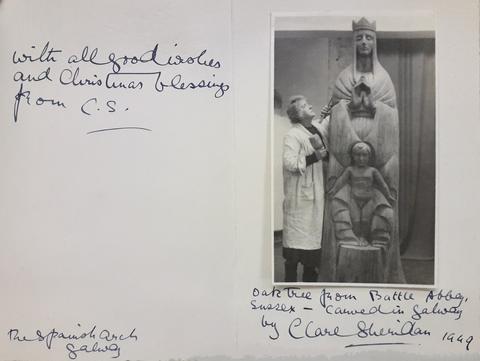 with all good wishes
and Christmas blessings
from C.S.
The Spanish Arch
Galway
Oak Tree from Battle Abbey,
Sussex – Carved in Galway
by Clare Sheridan 1949